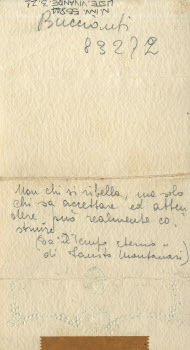 Buccianti
89272
Non chi si ribella, ma solo
chi sa accettare ed atten
dere, può realmente co
struire.
(da "Il Tempo eterno"
di Fausto Montanari)